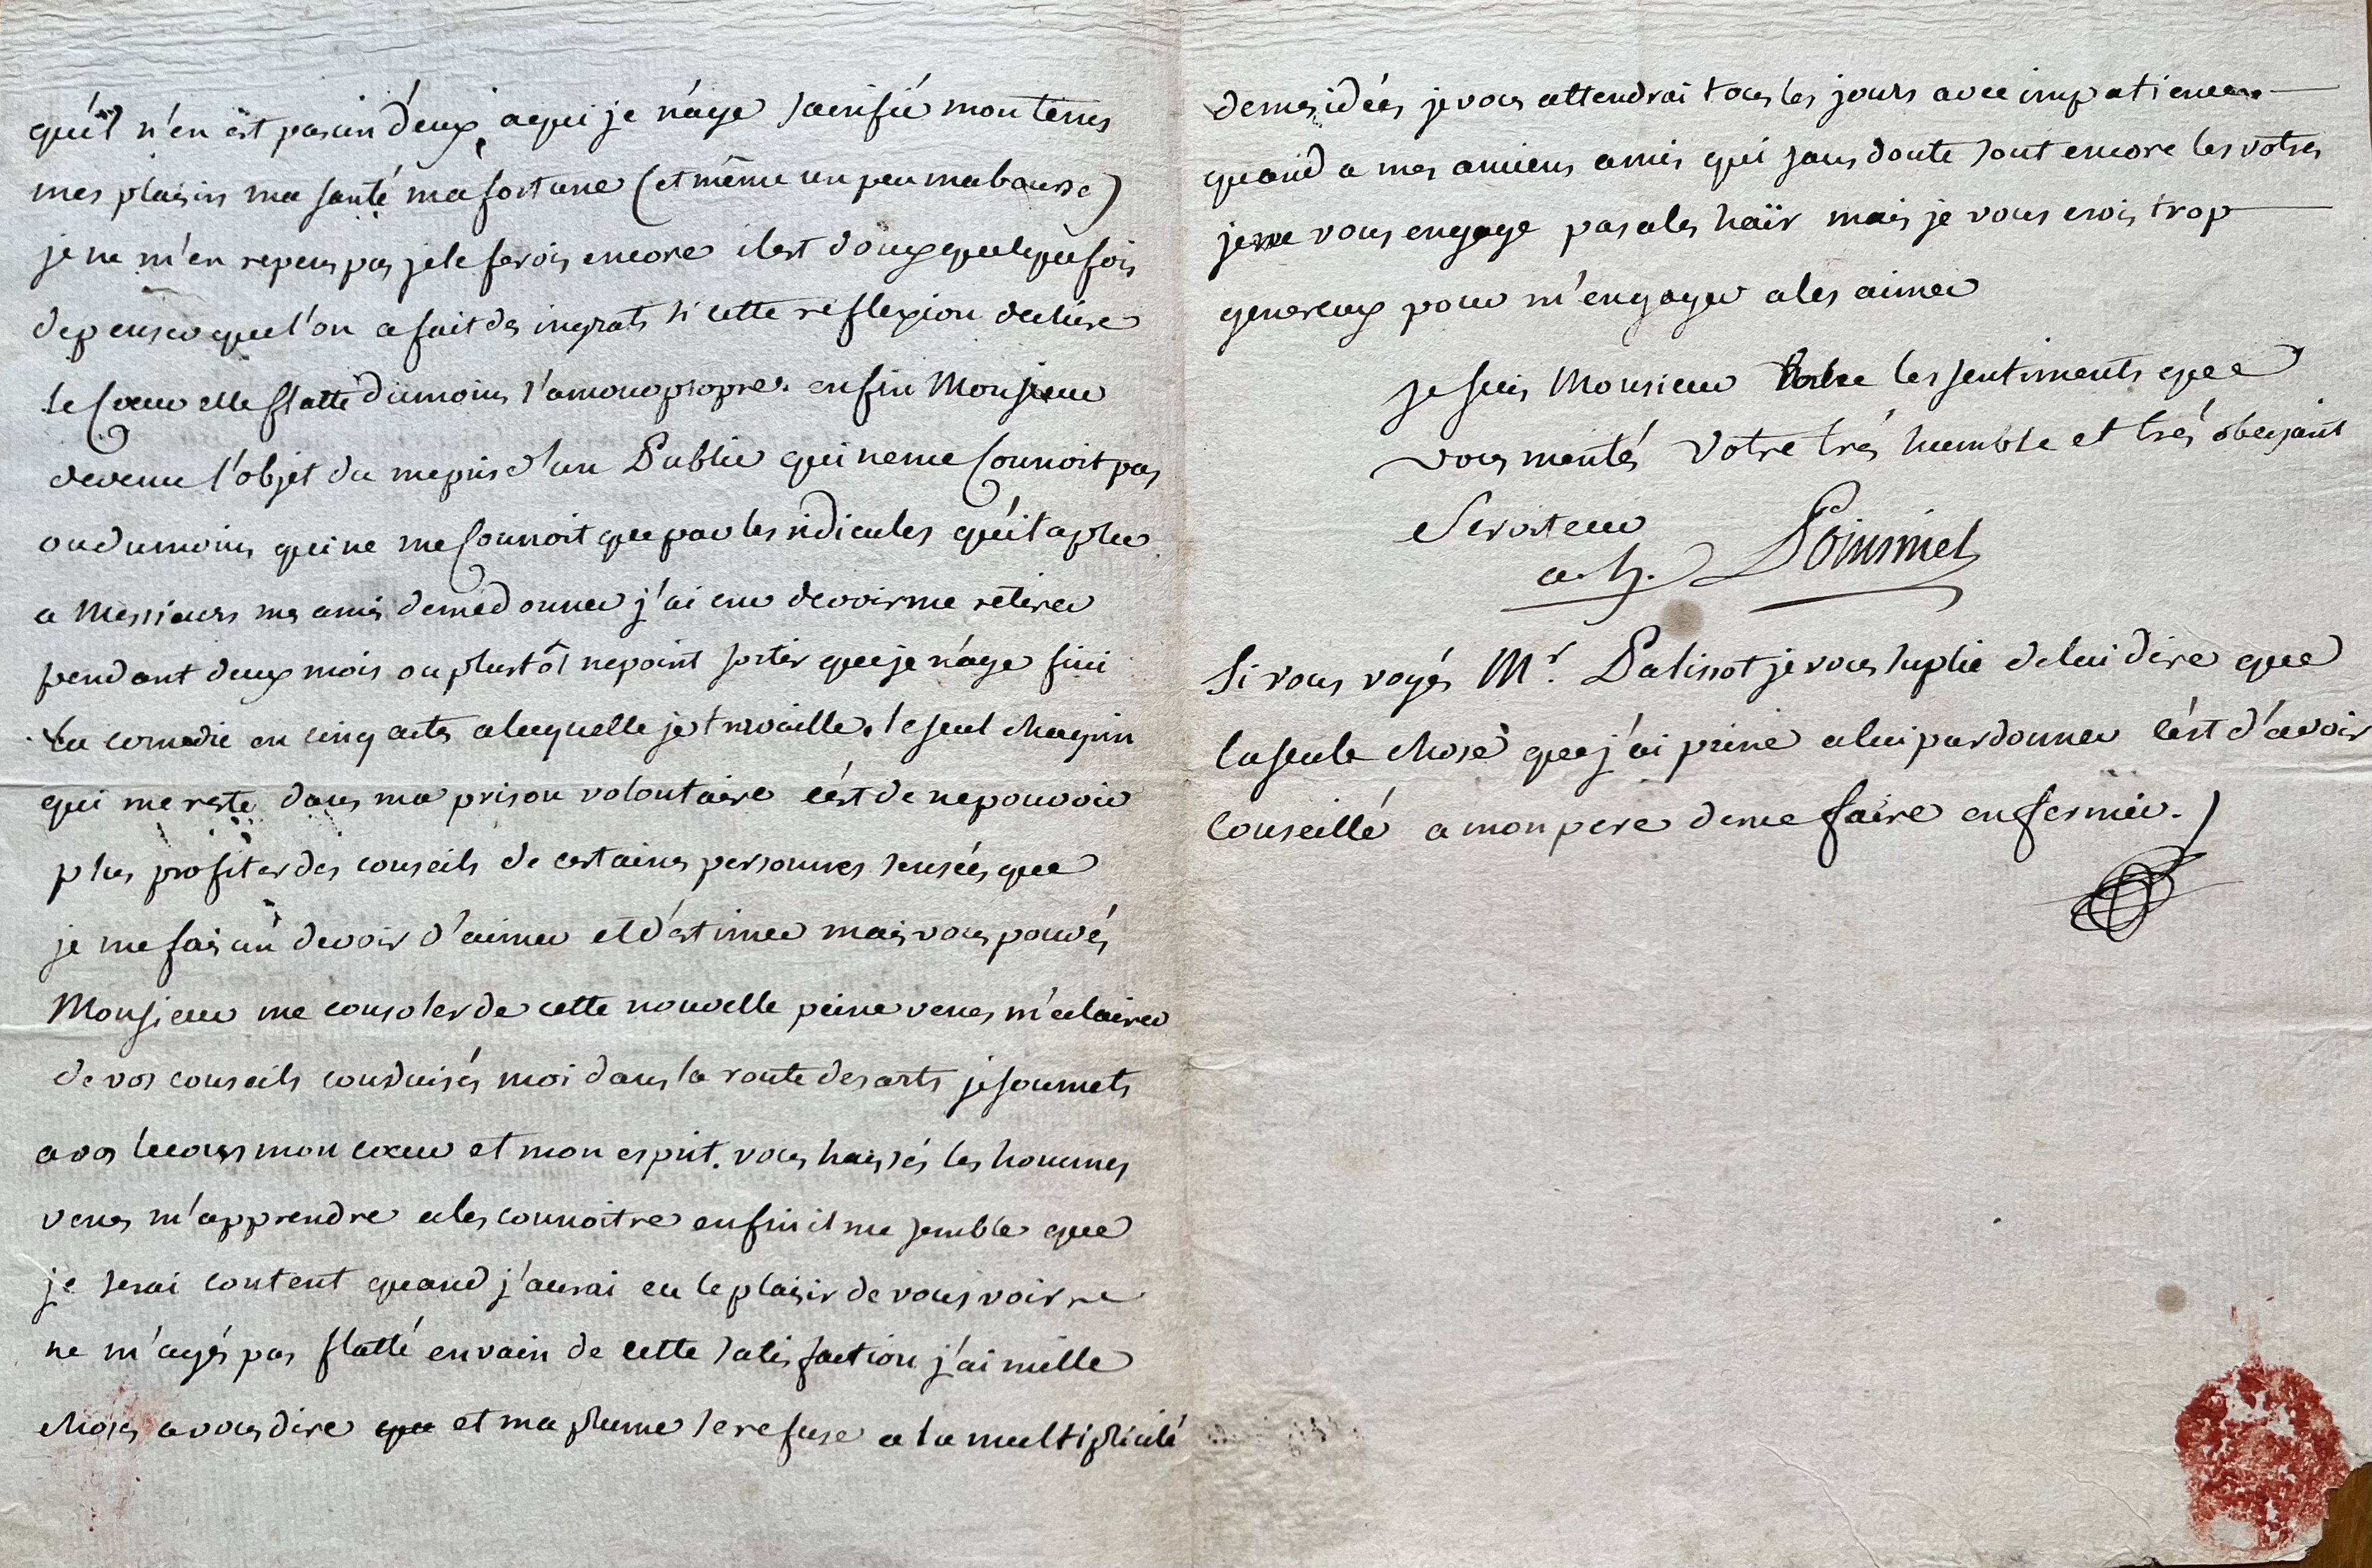 qu'il n'en est pas un d'eux a qui je n'aye sacrifié mon tems
mes plaisirs ma santé ma fortune (et même un peu ma bourse)
je ne m'en repens pas je le ferois encore il est doux quelque fois
de penser que l'on a fait des ingrats si cette reflexion dechire
le Cœur elle flatte du moins l'amour propre. enfin Monsieur
devenu l'objet du mepris d'un Public qui ne me Connoit pas
ou du moins qui ne me Connoit que par les ridicules qu'il a plu
a Messieurs mes amis de me donner j'ai cru devoir me retirer
pendant deux mois ou plustôt ne point sortir que je n'aye fini
la comedie en cinq actes a laquelle je travaille. le seul chagrin
qui me reste dans ma prison volontaire c'est de ne pouvoir
plus profiter des conseils de certaines personnes sensées que
je me fais un devoir d'aimer et d'estimer mais vous pouvés
Monsieur me consoler de cette nouvelle peine venes m'eclairer
de vos conseils conduisés moi dans la route des arts je soumets
a vos lecons mon cœur et mon esprit. vous haissés les hommes
venes m'apprendre a les connoitre enfin il me semble que
je serai content quand j'aurai eu le plaisir de vous voir ne
ne m'ayés pas flatté en vain de cette satisfaction j'ai mille
choses a vous dire que et ma plume se refuse a la multiplicité
de mes idées je vous attendrai tous les jours avec impatience
quand a mes anciens amis qui sans doute sont encore les votres
je ne vous engage pas a les haïr mais je vous crois trop
genereux pour m'engager a les aimer
Je suis Monsieur les sentiments que
vous merités Votre trés humble et trés obeissant
Serviteur
a. h. Poinsinet
Si vous voyés Mr. Palissot je vous suplie de lui dire que
la seule chose que j'ai peine a lui pardonner c'est d'avoir
Conseillé a mon pere de me faire enfermer.